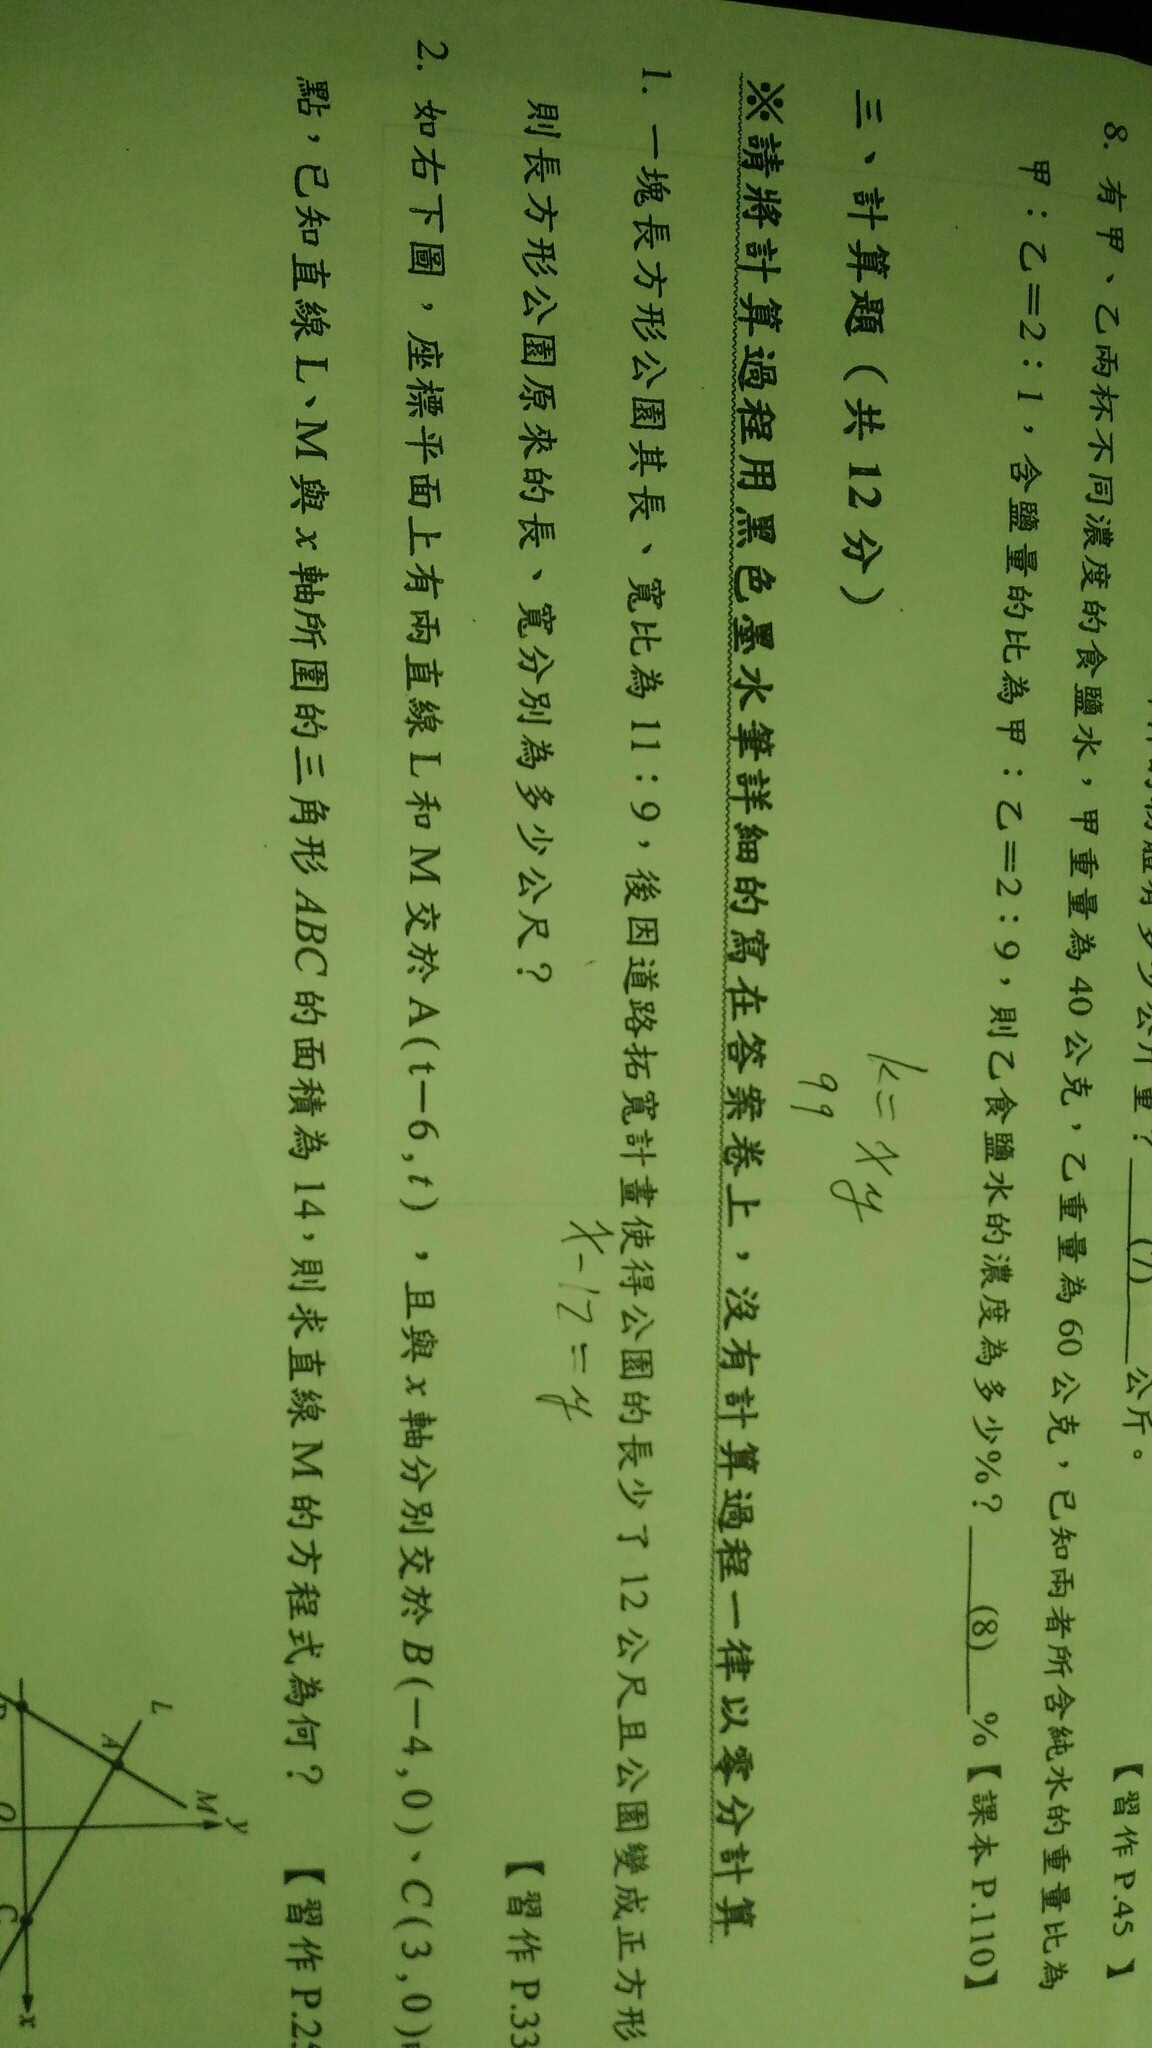 公斤重?  (7)  公斤。
【習作P.45】
8. 有甲、乙兩杯不同濃度的食鹽水,甲重量為40公克,乙重量為60公克,已知兩者所含純水的重量比為
甲:乙=2:1,含鹽量的比為甲:乙=2:9,則乙食鹽水的濃度為多少%?  (8)  %【課本P.110】
三、計算題(共12分)
k= xy
99
※請將計算過程用黑色墨水筆詳細的寫在答案卷上,沒有計算過程一律以零分計算
1. 一塊長方形公園其長、寬比為11:9,後因道路拓寬計畫使得公園的長少了12公尺且公園變成正方形
x-12=y
則長方形公園原來的長、寬分別為多少公尺?
【習作P.33
2. 如右下圖,座標平面上有兩直線L和M交於A(t-6,t),且與x軸分別交於B(-4,0)、C(3,0)
點,已知直線L、M與x軸所圍的三角形ABC的面積為14,則求直線M的方程式為何?
【習作P.2
L
A
M
y
O
C
x